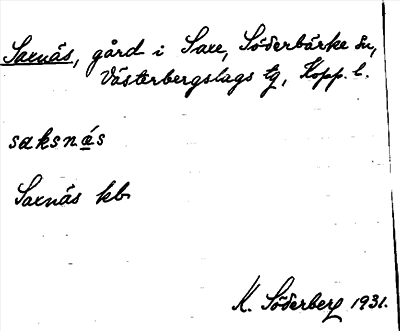 Saxnäs, gård i Saxe, Söderbärke sn,
Västerbergslags tg, Kopp. l.
saksnæ̀s
Saxnäs kb
K. Söderberg 1931.